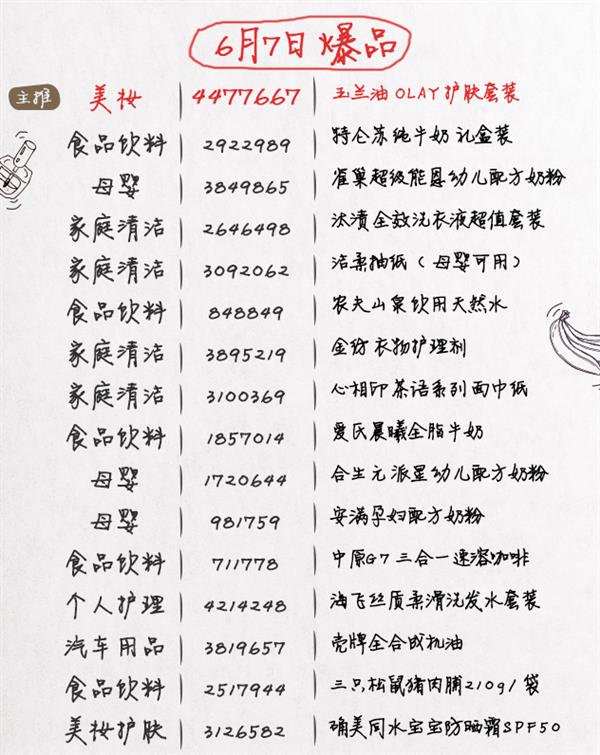 6月7日 爆品
主推 美妆 4477667 玉兰油OLAY护肤套装
食品饮料 2922989 特仑苏纯牛奶礼盒装
母婴 3849865 雀巢超级能恩幼儿配方奶粉
家庭清洁 2646498 汰渍全效洗衣液超值套装
家庭清洁 3092062 洁柔抽纸(母婴可用)
食品饮料 848849 农夫山泉饮用天然水
家庭清洁 3895219 金纺衣物护理剂
家庭清洁 3100369 心相印茶语系列面巾纸
食品饮料 1857014 爱氏晨曦全脂牛奶
母婴 1720644 合生元派星幼儿配方奶粉
母婴 981759 安满孕妇配方奶粉
食品饮料 711778 中原G7三合一速溶咖啡
个人护理 4214248 海飞丝质柔滑洗发水套装
汽车用品 3819657 壳牌全合成机油
食品饮料 2517944 三只松鼠猪肉脯210g/袋
美妆护肤 3126582 确美同水宝宝防晒霜SPF50